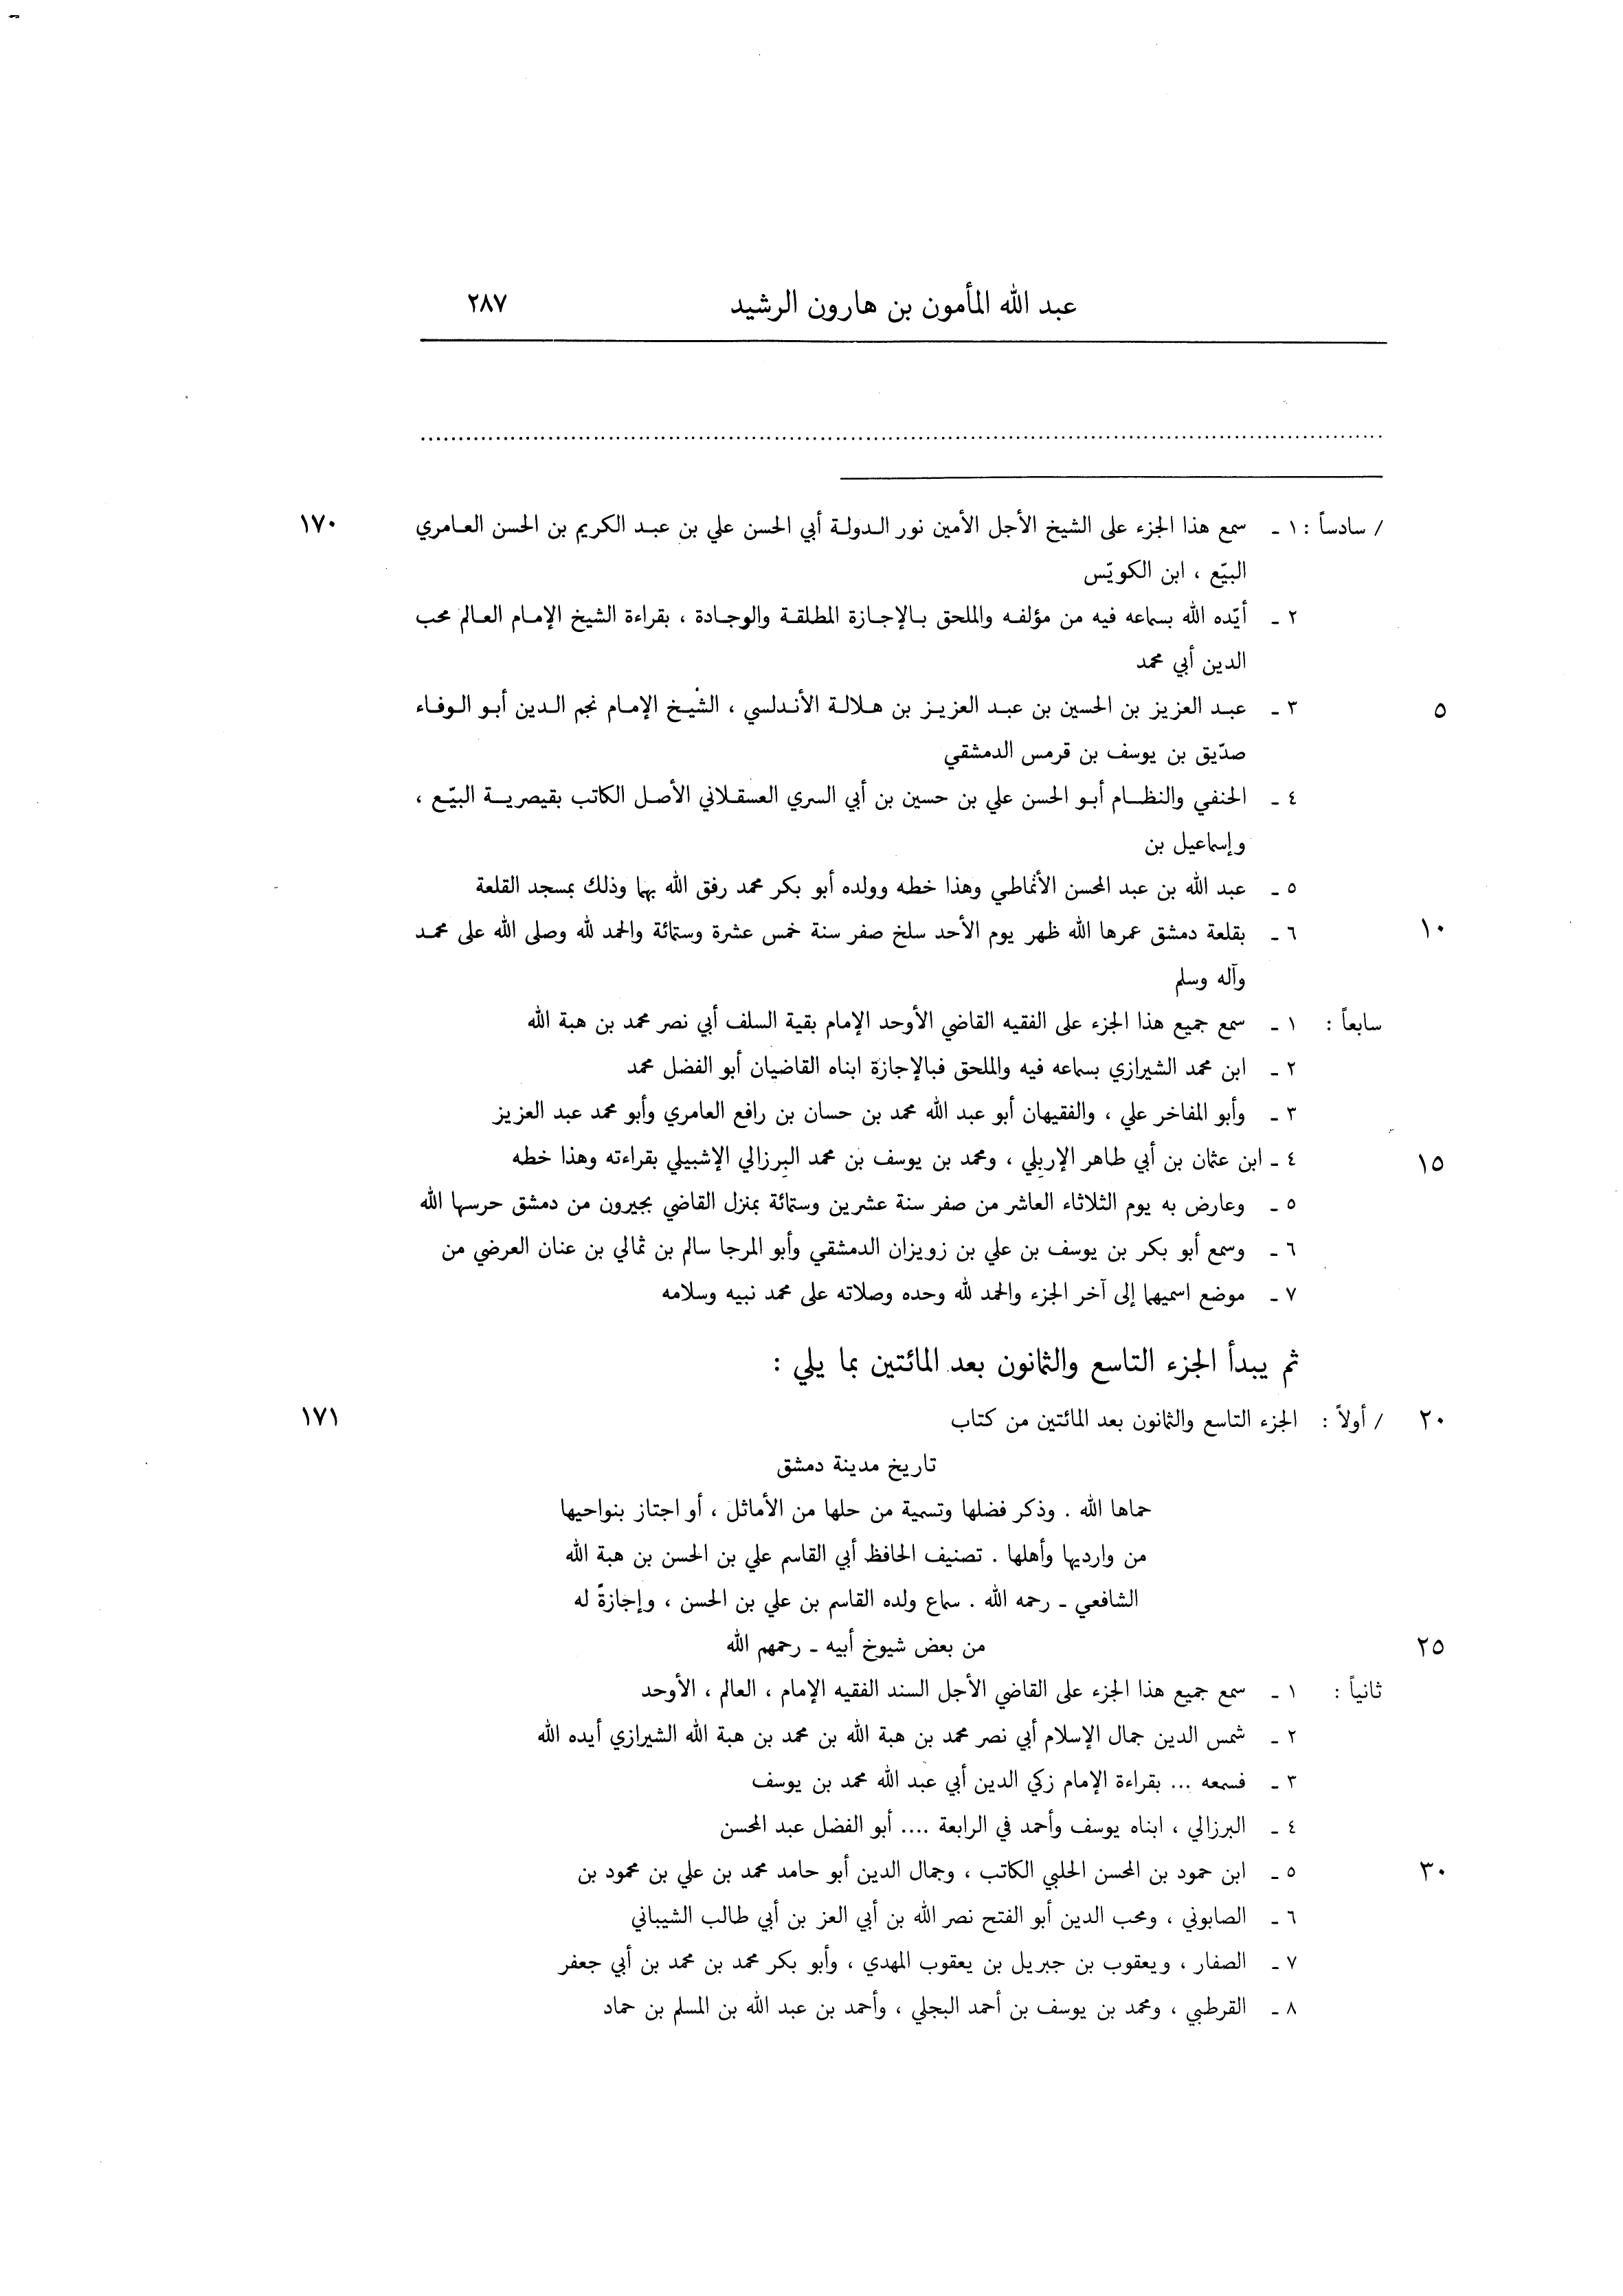 عبد الله المأمون بن هارون الرشيد ٢٨٧
................................................................
/ سادساً : ١ ـ سمع هذا الجزء على الشيخ الأجل الأمين نور الدولة أبي الحسن علي بن عبد الكريم بن الحسن العامري ١٧٠
البيّع ، ابن الكويّس
٢ ـ أيّده الله بسماعه فيه من مؤلفه والملحق بالإجازة المطلقة والوجادة ، بقراءة الشيخ الإمام العالم محب
الدين أبي محمد
٥ ٣ ـ عبد العزيز بن الحسين بن عبد العزيز بن هلالة الأندلسي ، الشيخ الإمام نجم الدين أبو الوفاء
صدّيق بن يوسف بن قرمس الدمشقي
٤ ـ الحنفي والنظام أبو الحسن علي بن حسين بن أبي السري العسقلاني الأصل الكاتب بقيصرية البيّع ،
وإسماعيل بن
٥ ـ عبد الله بن عبد المحسن الأنماطي وهذا خطه وولده أبو بكر محمد رفق الله بهما وذلك بمسجد القلعة
١٠ ٦ ـ بقلعة دمشق عمرها الله ظهر يوم الأحد سلخ صفر سنة خمس عشرة وستمائة والحمد لله وصلى الله على محمد
وآله وسلم
سابعاً : ١ ـ سمع جميع هذا الجزء على الفقيه القاضي الأوحد الإمام بقية السلف أبي نصر محمد بن هبة الله
٢ ـ ابن محمد الشيرازي بسماعه فيه والملحق فبالإجازة ابناه القاضيان أبو الفضل محمد
٣ ـ وأبو المفاخر علي ، والفقيهان أبو عبد الله محمد بن حسان بن رافع العامري وأبو محمد عبد العزيز
١٥ ٤ ـ ابن عثمان بن أبي طاهر الإربلي ، ومحمد بن يوسف بن محمد البرزالي الإشبيلي بقراءته وهذا خطه
٥ ـ وعارض به يوم الثلاثاء العاشر من صفر سنة عشرين وستمائة بمنزل القاضي بجيرون من دمشق حرسها الله
٦ ـ وسمع أبو بكر بن يوسف بن علي بن زويزان الدمشقي وأبو المرجا سالم بن ثمالي بن عنان العرضي من
٧ ـ موضع اسميهما إلى آخر الجزء والحمد لله وحده وصلاته على محمد نبيه وسلامه
ثم يبدأ الجزء التاسع والثمانون بعد المائتين بما يلي :
٢٠ / أولاً : الجزء التاسع والثمانون بعد المائتين من كتاب ١٧١
تاريخ مدينة دمشق
حماها الله . وذكر فضلها وتسمية من حلها من الأماثل ، أو اجتاز بنواحيها
من وارديها وأهلها . تصنيف الحافظ أبي القاسم علي بن الحسن بن هبة الله
الشافعي ـ رحمه الله . سماع ولده القاسم بن علي بن الحسن ، وإجازةً له
٢٥ من بعض شيوخ أبيه ـ رحمهم الله
ثانياً : ١ ـ سمع جميع هذا الجزء على القاضي الأجل السند الفقيه الإمام ، العالم ، الأوحد
٢ ـ شمس الدين جمال الإسلام أبي نصر محمد بن هبة الله بن محمد بن هبة الله الشيرازي أيده الله
٣ ـ فسمعه ... بقراءة الإمام زكي الدين أبي عبد الله محمد بن يوسف
٤ ـ البرزالي ، ابناه يوسف وأحمد في الرابعة .... أبو الفضل عبد المحسن
٣٠ ٥ ـ ابن حمود بن المحسن الحلبي الكاتب ، وجمال الدين أبو حامد محمد بن علي بن محمود بن
٦ ـ الصابوني ، ومحب الدين أبو الفتح نصر الله بن أبي العز بن أبي طالب الشيباني
٧ ـ الصفار ، ويعقوب بن جبريل بن يعقوب المهدي ، وأبو بكر محمد بن محمد بن أبي جعفر
٨ ـ القرطبي ، ومحمد بن يوسف بن أحمد البجلي ، وأحمد بن عبد الله بن المسلم بن حماد